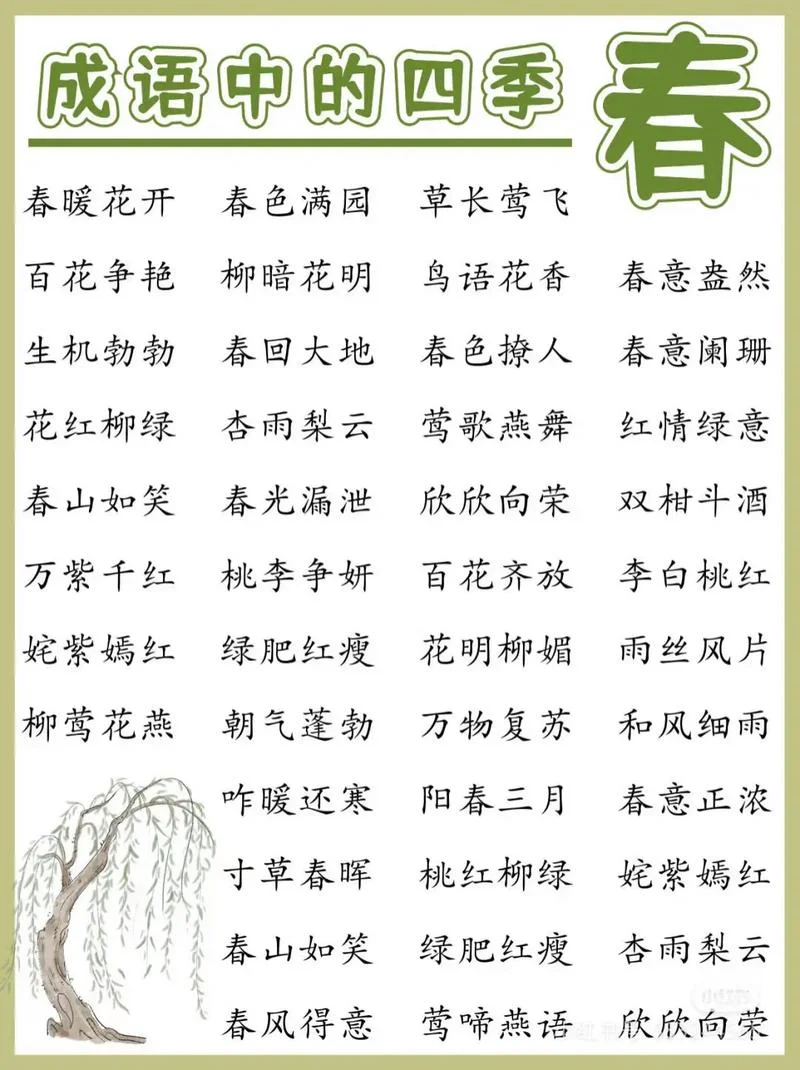 成语中的四季 春
春暖花开 春色满园 草长莺飞
百花争艳 柳暗花明 鸟语花香 春意盎然
生机勃勃 春回大地 春色撩人 春意阑珊
花红柳绿 杏雨梨云 莺歌燕舞 红情绿意
春山如笑 春光漏泄 欣欣向荣 双柑斗酒
万紫千红 桃李争妍 百花齐放 李白桃红
姹紫嫣红 绿肥红瘦 花明柳媚 雨丝风片
柳莺花燕 朝气蓬勃 万物复苏 和风细雨
咋暖还寒 阳春三月 春意正浓
寸草春晖 桃红柳绿 姹紫嫣红
春山如笑 绿肥红瘦 杏雨梨云
春风得意 莺啼燕语 欣欣向荣